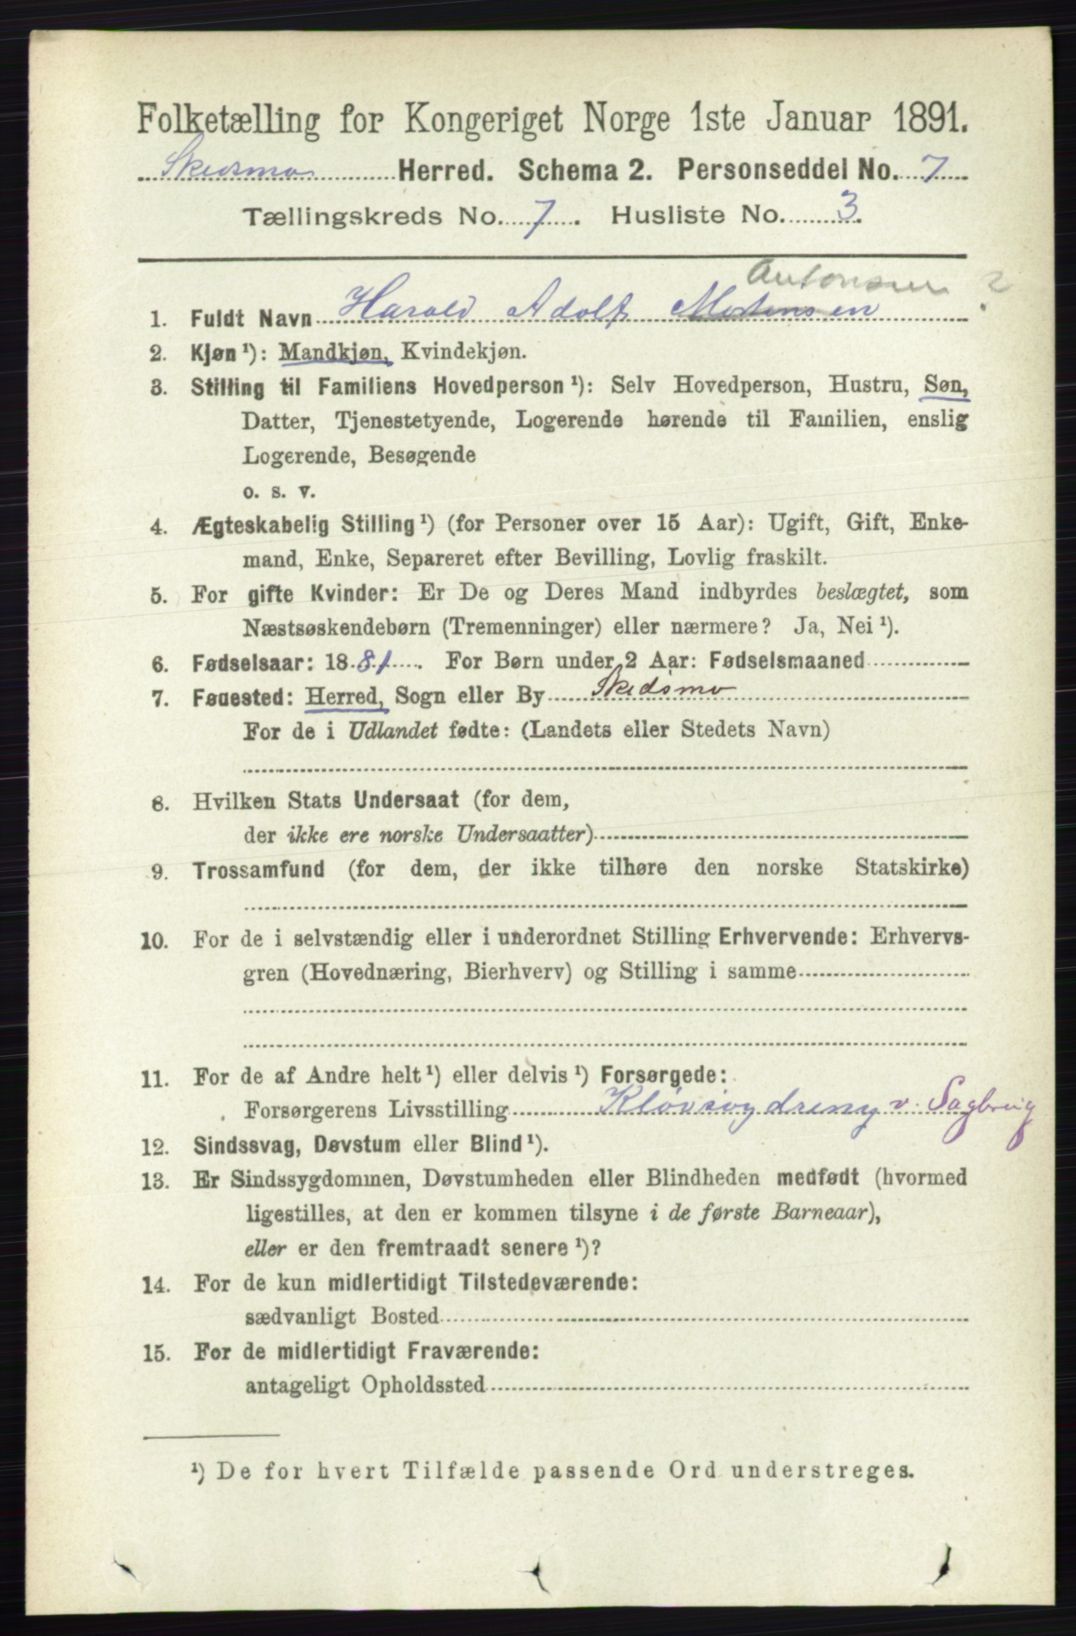 Folketælling for Kongeriget Norge 1ste Januar 1891.
Skedsmo Herred. Schema 2. Personseddel No. 7
Tællingskreds No. 7. Husliste No. 3.
Antonsen ?
1. Fuldt Navn Harald Adolf Mortensen
2. Kjøn ¹): Mandkjøn, Kvindekjøn.
3. Stilling til Familiens Hovedperson ¹): Selv Hovedperson, Hustru, Søn,
Datter, Tjenestetyende, Logerende hørende til Familien, enslig
Logerende, Besøgende
o. s. v.
4. Ægteskabelig Stilling ¹) (for Personer over 15 Aar): Ugift, Gift, Enke-
mand, Enke, Separeret efter Bevilling, Lovlig fraskilt.
5. For gifte Kvinder: Er De og Deres Mand indbyrdes beslægtet, som
Næstsøskendebørn (Tremenninger) eller nærmere? Ja, Nei ¹).
6. Fødselsaar: 1881. For Børn under 2 Aar: Fødselsmaaned
7. Fødested: Herred, Sogn eller By Skedsmo
For de i Udlandet fødte: (Landets eller Stedets Navn)
8. Hvilken Stats Undersaat (for dem,
der ikke ere norske Undersaatter)
9. Trossamfund (for dem, der ikke tilhøre den norske Statskirke)
10. For de i selvstændig eller i underordnet Stilling Erhvervende: Erhvervs-
gren (Hovednæring, Bierhverv) og Stilling i samme
11. For de af Andre helt ¹) eller delvis ¹) Forsørgede:
Forsørgerens Livsstilling Kløvsugdreng v. Sagbrug
12. Sindssvag, Døvstum eller Blind ¹).
13. Er Sindssygdommen, Døvstumheden eller Blindheden medfødt (hvormed
ligestilles, at den er kommen tilsyne i de første Barneaar),
eller er den fremtraadt senere ¹)?
14. For de kun midlertidigt Tilstedeværende:
sædvanligt Bosted
15. For de midlertidigt Fraværende:
antageligt Opholdssted
¹) De for hvert Tilfælde passende Ord understreges.